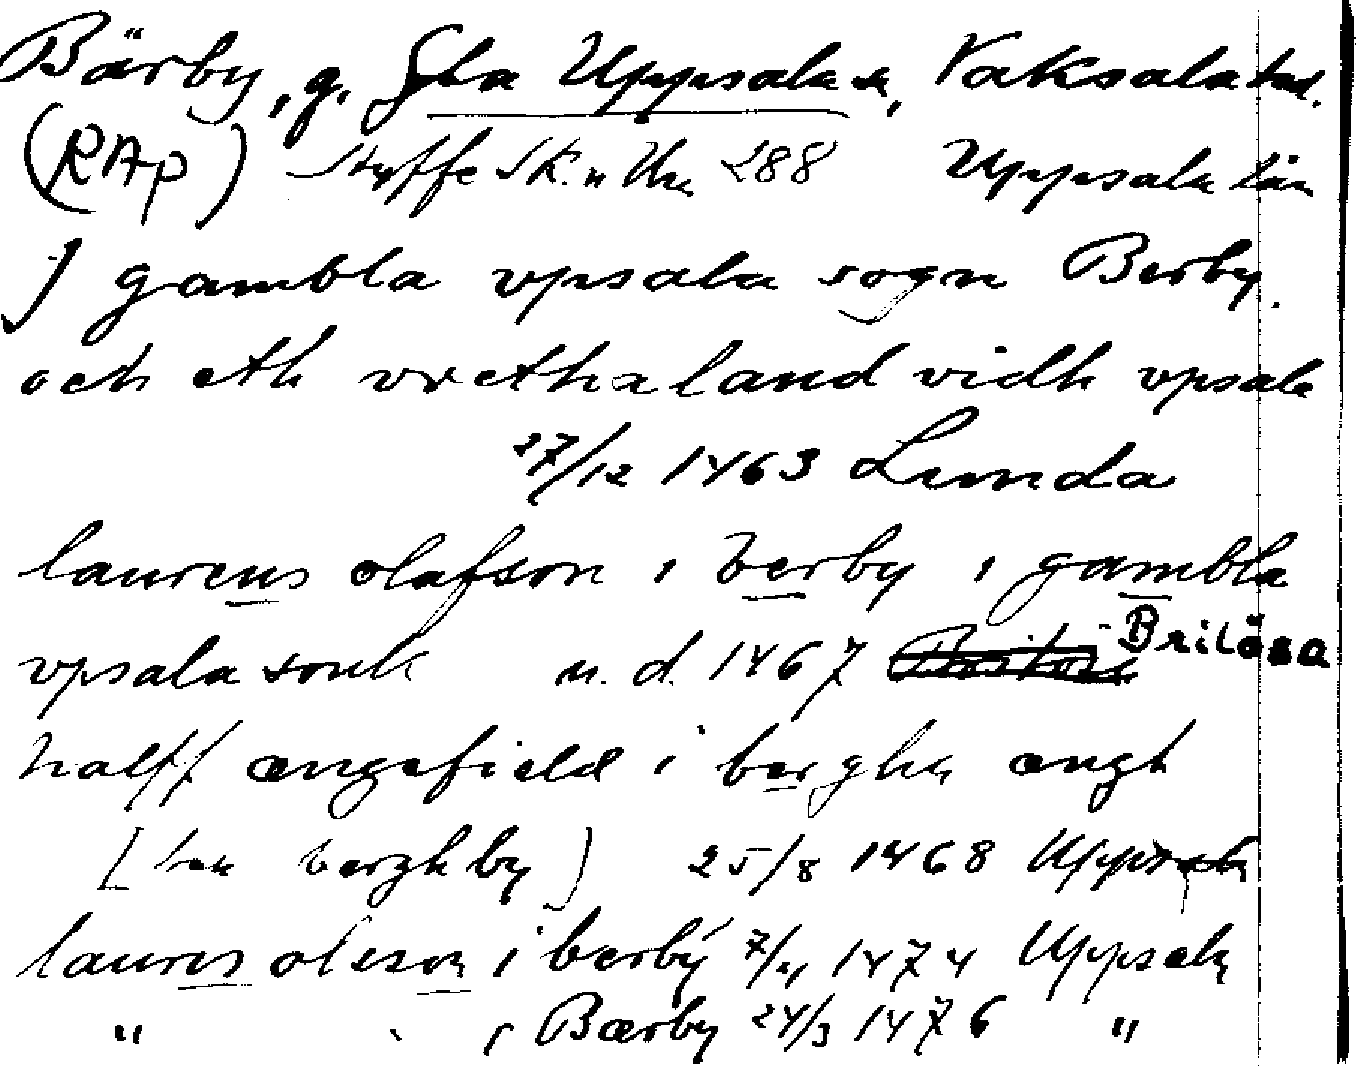 Bärby, g. Gla Uppsala sn, Vaksala hd.
(RAp) Styffe Sk. u Un 288 Uppsala län
J gambla vpsala sogn Berby.
och eth vrethaland vidh vpsala
27/12 1463 Lunda
laurens olafson i berby i gambla
vpsala sonk u. d. 1467 Brilösa
halff ængefield i bergha ængh
[ bergh by ] 25/8 1468 Uppsala
laurens oleson i berby 7/11 1474 Uppsala
" " i Bærby 24/3 1476 "